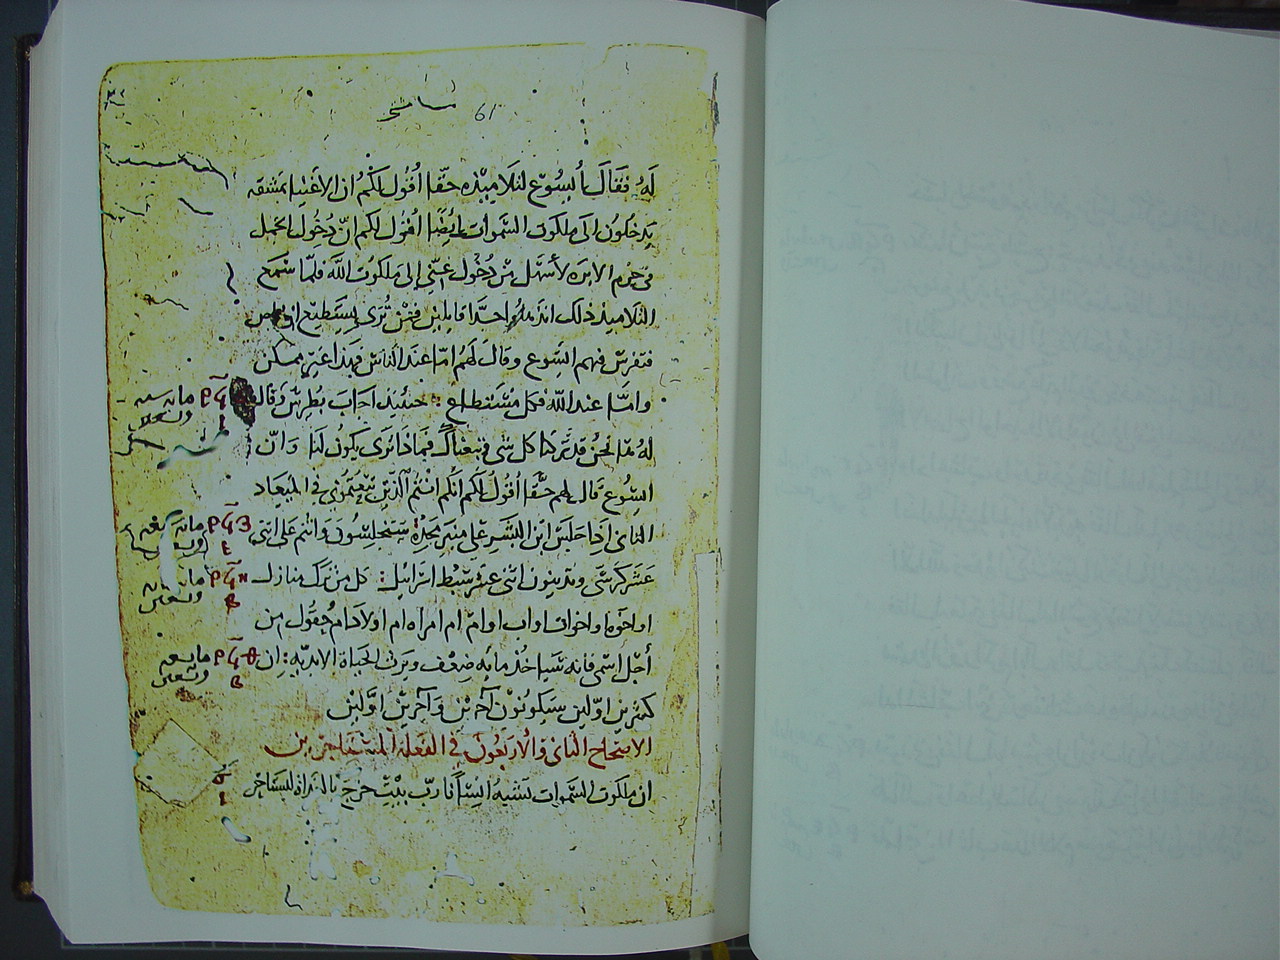 61
له فقال يسوع لتلاميذه حقا اقول لكم ان الاغنيا بمشقه
يدخلون الى ملكوت السموات ايضا اقول لكم ان دخول الجمل
في خرم الابره لأسهل من دخول غني إلى ملكوت الله فلما سمع
التلاميذ ذلك جدا قايلين فمن ترى يستطيع ان يخلص
فتفرس فيهم اليسوع وقال لهم امّا عند الناس فهذا غير ممكن
وامّا عند الله فكل مستطاع : حينيذ اجاب بطرس وقال
له ها نحن قد تركنا كل شى وتبعناك فماذا ترى يكون لنا وان
اليسوع قال لهم حقّا اقول لكم انكم انتم الذين تبعتموني في الميعاد
الثاني اذا جلس ابن البشر على منبر مجده ستجلسون وانتم على اثني
عشر كرسى وتدينون اثنى عشر سبط اسرائيل : كل من ترك منازل
او اخوه او اخوات او اب او امّ ام امراه ام اولاد ام حقول من
أجل اسمى فانه سياخذ مايه ضعف ويرث الحياة الابديّه : ان
كثيرين اوّلين سيكونون آخرين وآخرين اوّلين
الاصحاح الثاني والاربعون في الفعلة المستاجرين
ان ملكوت السموات يشبه انساناً ربّ بيت خرج بالغداة ليستاجر